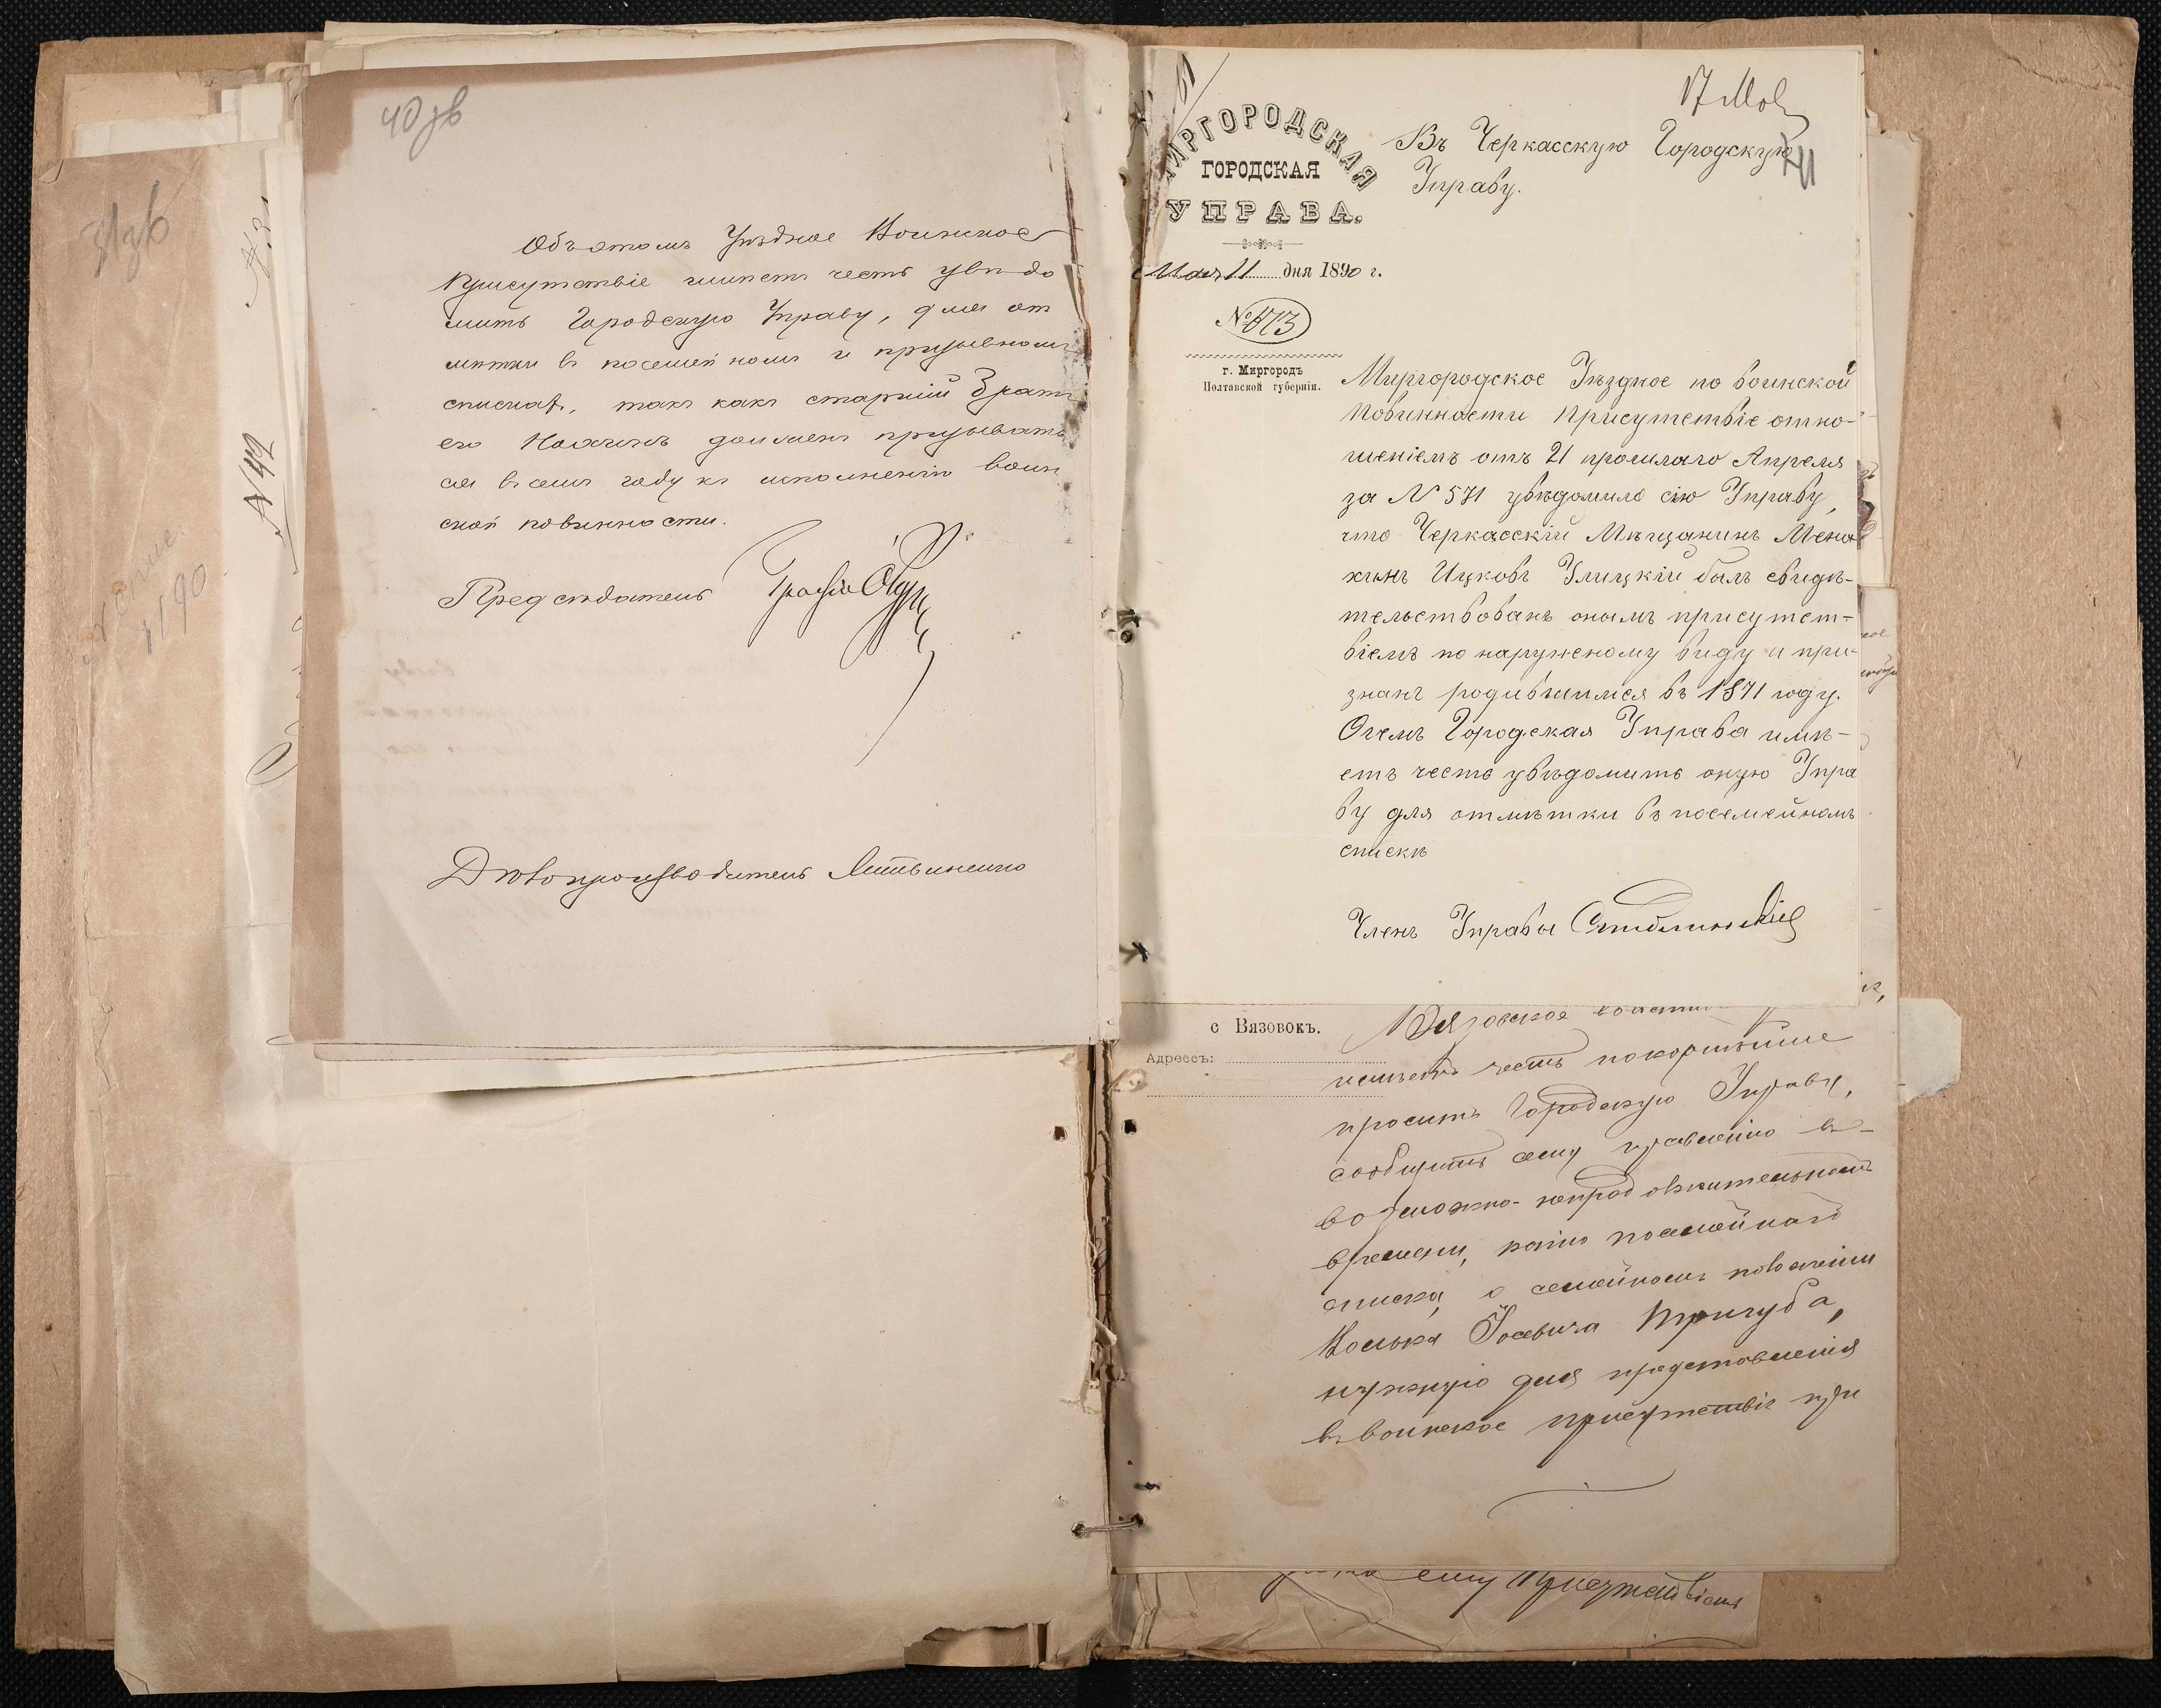 40 зв
Объ этомъ Уѣздное Воинское
Присутствіе имѣетъ честь увѣдо
мить Городскую Управу, для от
мѣтки въ посемейномъ и призывномъ
спискахъ, такъ какъ старшій братъ
его долженъ призывать
ся въ семъ году къ исполненію воин
ской повинности.
Предсѣдатель
Дѣлопроизводитель Литвиненко
31 зв
N 42
1190
17 Мая
41
МИРГОРОДСКАЯ
ГОРОДСКАЯ
УПРАВА.
Мая 11 дня 1890 г.
№ 673
г. Миргородъ
Полтавской губерніи.
Въ Черкасскую Городскую
Управу.
Миргородское Уѣздное по воинской
повинности Присутствіе отно-
шеніемъ отъ 21 прошлаго Апреля
за N 571 увѣдомило сію Управу,
что Черкасскій Мѣщанинъ Мена
химъ Ицковъ Улицкій былъ свидѣ-
тельствованъ онымъ присутст-
віемъ по наружному виду и при-
знанъ родившимся въ 1871 году.
О чемъ Городская Управа имѣ-
етъ честь увѣдомить оную Упра
ву для отмѣтки въ посемейномъ
спискѣ
Членъ Управы
с Вязовокъ.
Адрессъ:
Вязовское
имѣетъ честь покорнѣйше
просить Городскую Управу,
сообщить сему правленію въ
возможно-непродолжительномъ
времени, копію посемейнаго
списка, о семейномъ положеніи
Іосевича Тригуба,
нужную для представленія
въ воинское присутствіе при
ему Присутствіемъ